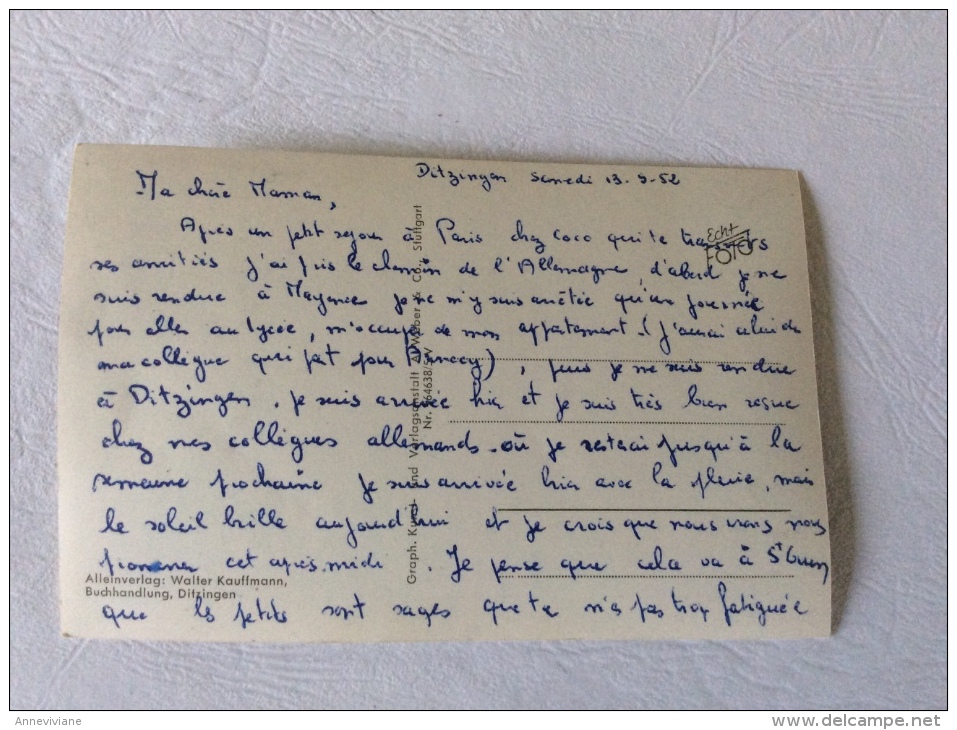 Ditzingen samedi 13-9-52
Ma chère Maman,
Après un petit séjour à Paris chez Coco qui te transmets
ses amitiés j'ai pris le chemin de l'Allemagne, d'abord je me
suis rendue à Mayence je ne m'y suis arrêtée qu'une journée
pour aller au lycée, m'occuper de mon appartement (j'aurai celui de
ma collègue qui part pour Annecy), puis je me suis rendue
à Ditzingen. je suis arrivée hier et je suis très bien reçue
chez mes collègues allemands. où je resterai jusqu'à la
semaine prochaine je suis arrivée hier avec la pluie, mais
le soleil brille aujourd'hui et je crois que nous irons nous
promener cet après midi. Je pense que cela va à St
que les petits sont sages que tu n'es pas trop fatiguée
Echt
FOTO
Graph. Kunst- und Verlagsanstalt A. Weber & Co., Stuttgart
Alleinverlag: Walter Kauffmann,
Buchhandlung, Ditzingen
Anneviviane
www.delcampe.net